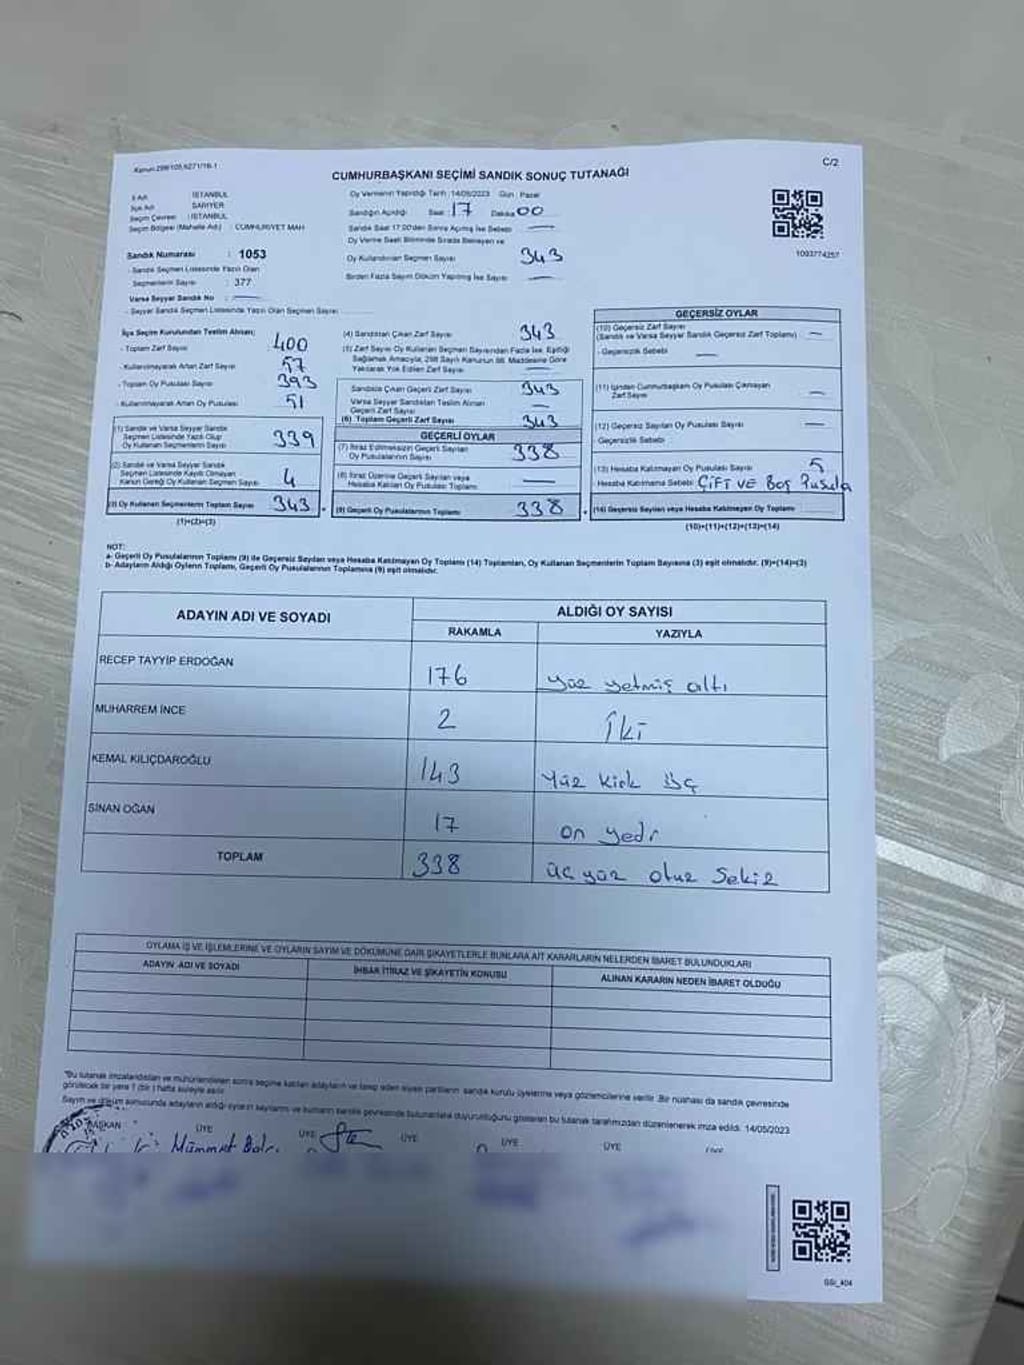 Kanun:298/105,6271/16-1
C/2
CUMHURBAŞKANI SEÇİMİ SANDIK SONUÇ TUTANAĞI
İli Adı : İSTANBUL
İlçe Adı : SARIYER
Seçim Çevresi : İSTANBUL
Seçim Bölgesi (Mahalle Adı) : CUMHURİYET MAH
Sandık Numarası : 1053
- Sandık Seçmen Listesinde Yazılı Olan
Seçmenlerin Sayısı : 377
Varsa Seyyar Sandık No : —
- Seyyar Sandık Seçmen Listesinde Yazılı Olan Seçmen Sayısı
Oy Vermenin Yapıldığı Tarih :14/05/2023 Gün : Pazar
Sandığın Açıldığı Saat : 17 Dakika 00
Sandık Saat 17.00'den Sonra Açılmış İse Sebebi —
Oy Verme Saati Bitiminde Sırada Bekleyen ve
Oy Kullandırılan Seçmen Sayısı 343
Birden Fazla Sayım Döküm Yapılmış İse Sayısı —
1093774257
İlçe Seçim Kurulundan Teslim Alınan;
- Toplam Zarf Sayısı : 400
- Kullanılmayarak Artan Zarf Sayısı : 57
- Toplam Oy Pusulası Sayısı : 393
- Kullanılmayarak Artan Oy Pusulası : 51
(1) Sandık ve Varsa Seyyar Sandık
Seçmen Listesinde Yazılı Olup
Oy Kullanan Seçmenlerin Sayısı 339
(2) Sandık ve Varsa Seyyar Sandık
Seçmen Listesinde Kayıtlı Olmayan
Kanun Gereği Oy Kullanan Seçmen Sayısı 4
(3) Oy Kullanan Seçmenlerin Toplam Sayısı 343
(1)+(2)=(3)
(4) Sandıktan Çıkan Zarf Sayısı 343
(5) Zarf Sayısı Oy Kullanan Seçmen Sayısından Fazla İse, Eşitliği
Sağlamak Amacıyla, 298 Sayılı Kanunun 98. Maddesine Göre
Yakılarak Yok Edilen Zarf Sayısı —
Sandıkta Çıkan Geçerli Zarf Sayısı 343
Varsa Seyyar Sandıktan Teslim Alınan
Geçerli Zarf Sayısı —
(6) Toplam Geçerli Zarf Sayısı 343
GEÇERLİ OYLAR
(7) İtiraz Edilmeksizin Geçerli Sayılan
Oy Pusulalarının Sayısı 338
(8) İtiraz Üzerine Geçerli Sayılan veya
Hesaba Katılan Oy Pusulası Toplamı —
(9) Geçerli Oy Pusulalarının Toplamı 338
GEÇERSİZ OYLAR
(10) Geçersiz Zarf Sayısı
(Sandık ve Varsa Seyyar Sandık Geçersiz Zarf Toplamı) —
- Geçersizlik Sebebi —
(11) İçinden Cumhurbaşkanı Oy Pusulası Çıkmayan
Zarf Sayısı —
(12) Geçersiz Sayılan Oy Pusulası Sayısı —
- Geçersizlik Sebebi
(13) Hesaba Katılmayan Oy Pusulası Sayısı 5
- Hesaba Katılmama Sebebi ÇİFT VE Boş Pusula
(14) Geçersiz Sayılan veya Hesaba Katılmayan Oy Toplamı
(10)+(11)+(12)+(13)=(14)
NOT:
a- Geçerli Oy Pusulalarının Toplamı (9) ile Geçersiz Sayılan veya Hesaba Katılmayan Oy Toplamı (14) Toplamları, Oy Kullanan Seçmenlerin Toplam Sayısına (3) eşit olmalıdır. (9)+(14)=(3)
b- Adayların Aldığı Oyların Toplamı, Geçerli Oy Pusulalarının Toplamına (9) eşit olmalıdır.
ADAYIN ADI VE SOYADI
ALDIĞI OY SAYISI
RAKAMLA YAZIYLA
RECEP TAYYİP ERDOĞAN 176 yüz yetmiş altı
MUHARREM İNCE 2 İki
KEMAL KILIÇDAROĞLU 143 Yüz kırk üç
SİNAN OĞAN 17 on yedi
TOPLAM 338 üç yüz otuz Sekiz
OYLAMA İŞ VE İŞLEMLERİNE VE OYLARIN SAYIM VE DÖKÜMÜNE DAİR ŞİKAYETLERLE BUNLARA AİT KARARLARIN NELERDEN İBARET BULUNDUKLARI
ADAYIN ADI VE SOYADI İHBAR İTİRAZ VE ŞİKAYETİN KONUSU ALINAN KARARIN NEDEN İBARET OLDUĞU
*Bu tutanak imzalandıktan ve mühürlendikten sonra seçime katılan adayların ve talep eden siyasi partilerin sandık kurulu üyelerine veya gözlemcilerine verilir. Bir nüshası da sandık çevresinde
görülecek bir yere 1 (bir ) hafta süreyle asılır.
Sayım ve döküm sonucunda adayların aldığı oyların sayılarını ve bunların sandık çevresinde bulunanlara duyurulduğunu gösteren bu tutanak tarafımızdan düzenlenerek imza edildi. 14/05/2023
BAŞKAN ÜYE ÜYE ÜYE ÜYE ÜYE ÜYE
GSI_404